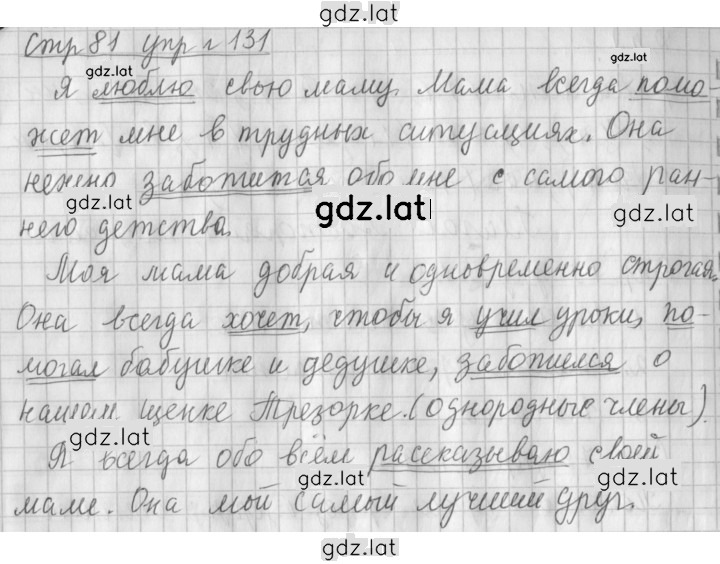 gdz.lat
Стр 81 упр г 131
gdz.lat
gdz.lat
Я люблю свою маму. Мама всегда помо-
жет мне в трудных ситуациях. Она
нежно заботится обо мне с самого ран-
gdz.lat
gdz.lat
gdz.lat
него детства.
Моя мама добрая и одновременно строгая.
Она всегда хочет, чтобы я учил уроки, по-
могал бабушке и дедушке, заботился о
нашем щенке Трезорке. (однородные члены).
gdz.lat
Я всегда обо всём рассказываю своей
gdz.lat
gdz.lat
маме. Она мой самый лучший друг.
gdz.lat